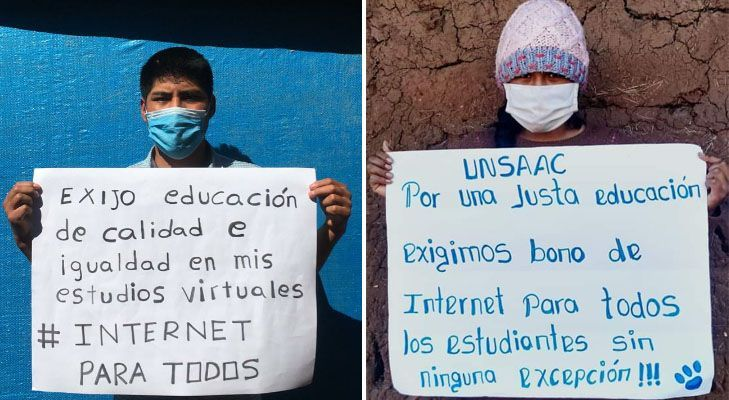 EXIJO educación
de calidad e
igualdad en mis
estudios virtuales
# INTERNET
PARA TODOS
UNSAAC
Por una Justa educación
exigimos bono de
Internet para todos
los estudiantes sin
ninguna excepción!!!